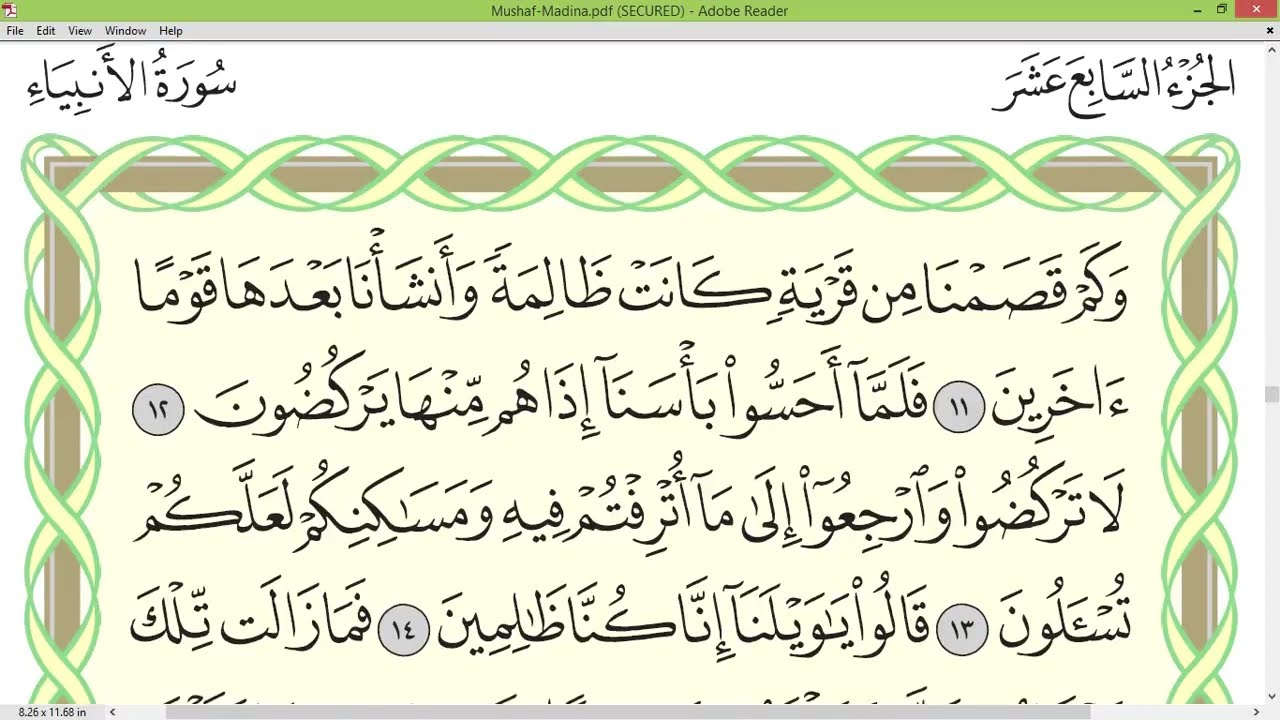 Mushaf-Madina.pdf (SECURED) - Adobe Reader
File Edit View Window Help
الجُزْءُ السَّابِعَ عَشَرَ
سُورَةُ الأَنبِيَاءِ
وَكَمْ قَصَمْنَا مِن قَرْيَةٍ كَانَتْ ظَالِمَةً وَأَنشَأْنَا بَعْدَهَا قَوْمًا
ءَاخَرِينَ ١١ فَلَمَّآ أَحَسُّوا۟ بَأْسَنَآ إِذَا هُم مِّنْهَا يَرْكُضُونَ ١٢
لَا تَرْكُضُوا۟ وَٱرْجِعُوٓا۟ إِلَىٰ مَآ أُتْرِفْتُمْ فِيهِ وَمَسَٰكِنِكُمْ لَعَلَّكُمْ
تُسْـَٔلُونَ ١٣ قَالُوا۟ يَٰوَيْلَنَآ إِنَّا كُنَّا ظَٰلِمِينَ ١٤ فَمَا زَالَت تِّلْكَ
8.26 x 11.68 in